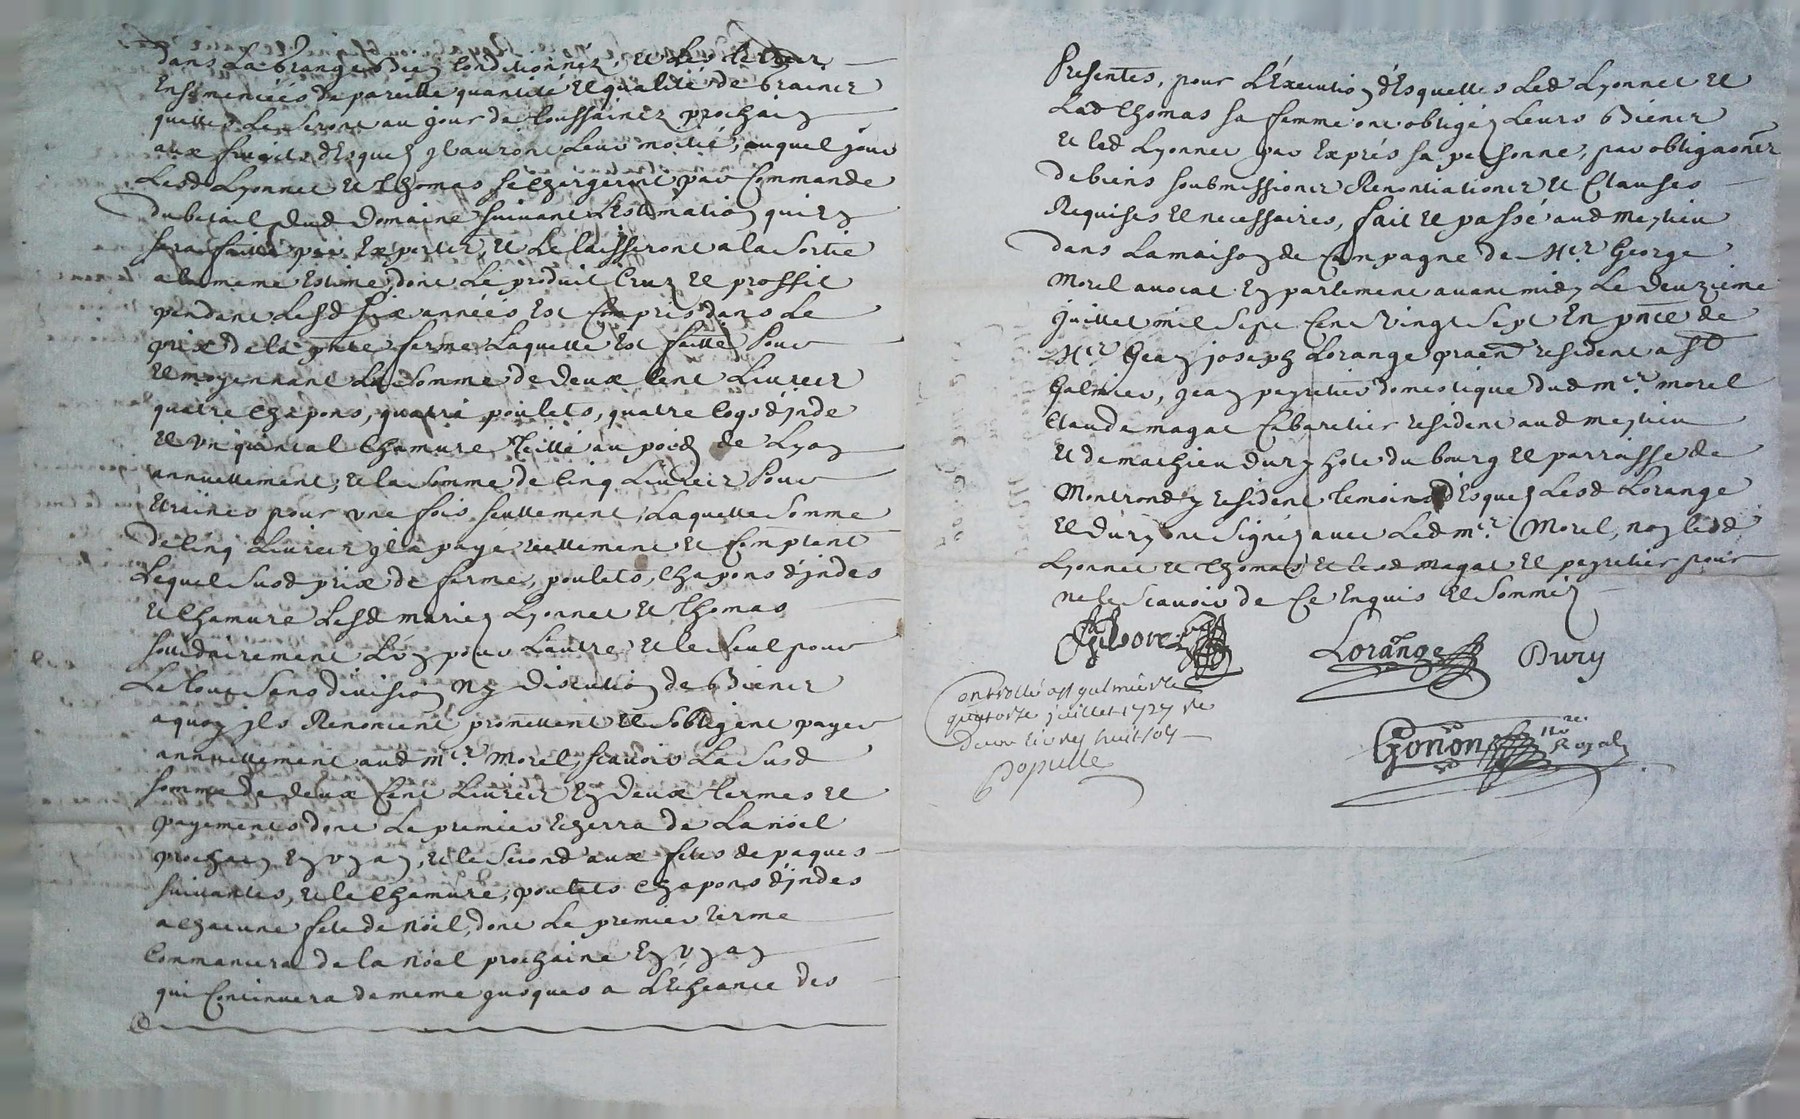 dans La Grange bien Conditionnéz, et Les terres
Ensemencéés de pareille quantité et qualité de Grainez
quelles Le seront au jour de toussainctz prochain
aux fruicts desquelz jl auront Leur moitié, auquel jour
Lesd Lyonnet et thomas se chargeront par Commande
du betail dud Domaine suivant L'estimation qui En
sera faitte par Expertz, et Le laisseront a la sortie
a la meme Estime, dont Le produit Cruz et proffit
pendant Lesd six annéés Est Compris dans Le
prix de la pnte ferme Laquelle Est faitte Pour
et moyennant La somme de deux Cent Livrez
quatre chapons, quatre poulets, quatre Coqs d'jnde
et un quintal chamure teillé au poid de Lyon
annuellement, et la somme de Cinq Livrez Pour
Etreines pour une fois seullement, Laquelle somme
de Cinq Livrez jl a payé reellement et Comptent
Lequel susd prix de ferme, poulets, chapons d'jndes
et chamure Lesd mariez Lyonnet et thomas
sollidairement L'un pour L'autre et le seul pour
Le tout sans division ny discution de Bienz
a quoy jls Renoncent promettent et s'obligent payer
annuellement aud mr. Morel, scavoir La susd
somme de deux Cent Livrez En deux termes et
payements dont Le premier Echerra de La noël
prochain En un an, et le second aux fetes de paques
suivantes, et le chamure, poulets chapons d'jndes
a chacune fete de noël, dont Le premier terme
Commancera de la noël prochaine En un an
qui Continuera de meme jusques a L'Echeance des
Presentes, pour L'Execution d'Esquelles Led Lyonnet et
Lad thomas sa femme ont obligéz Leurs Bienz
et led Lyonnet par Exprés sa personne, par obligaõnz
de biens soubmissionz Renontiationz et Clauses
Requises et necessaires, fait et passé aud meylieu
dans La maison de Campagne de Mr. George
Morel avocat En parlement avant midy Le deuzieme
juillet mil sept Cent vingt sept En pnce de
Mr. Jean joseph Lorange praen resident a St
Galmier, jean peyretier domestique dud mr. morel
Claude magat Cabaretier resident aud meylieu
et de mathieu dury hote du bourg et parroisse de
Montrond y resident temoins d'Esquelz Lesd Lorange
et dury ont signéz avec Led mr. Morel, non lesd
Lyonnet et thomas et lesd magat et peyretier pour
ne le scavoir de Ce Enquis et sommez
Lorange Dury
Controllé a St galmier le
quatorze juillet 1727 re
deux livres huit sols
Populle
Gonon nore Royal